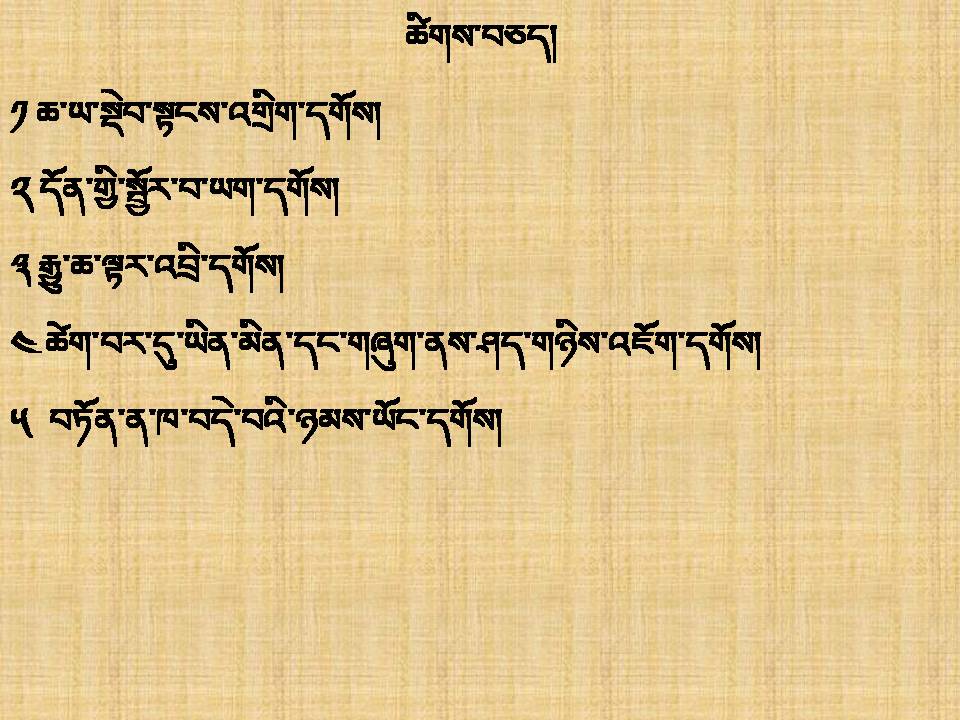 ཚིགས་བཅད།
༡ ཆ་ཡ་སྡེབ་སྟངས་འགྲིག་དགོས།
༢ དོན་གྱི་སྦྱོར་བ་ཡག་དགོས།
༣ རྒྱུ་ཆ་ལྟར་འབྲི་དགོས།
༤ ཚེག་བར་དུ་ཡིན་མིན་དང་གཞུག་ནས་ཤད་གཉིས་འཇོག་དགོས།
༥ བཏོན་ན་ཁ་བདེ་བའི་ཉམས་ཡོང་དགོས།